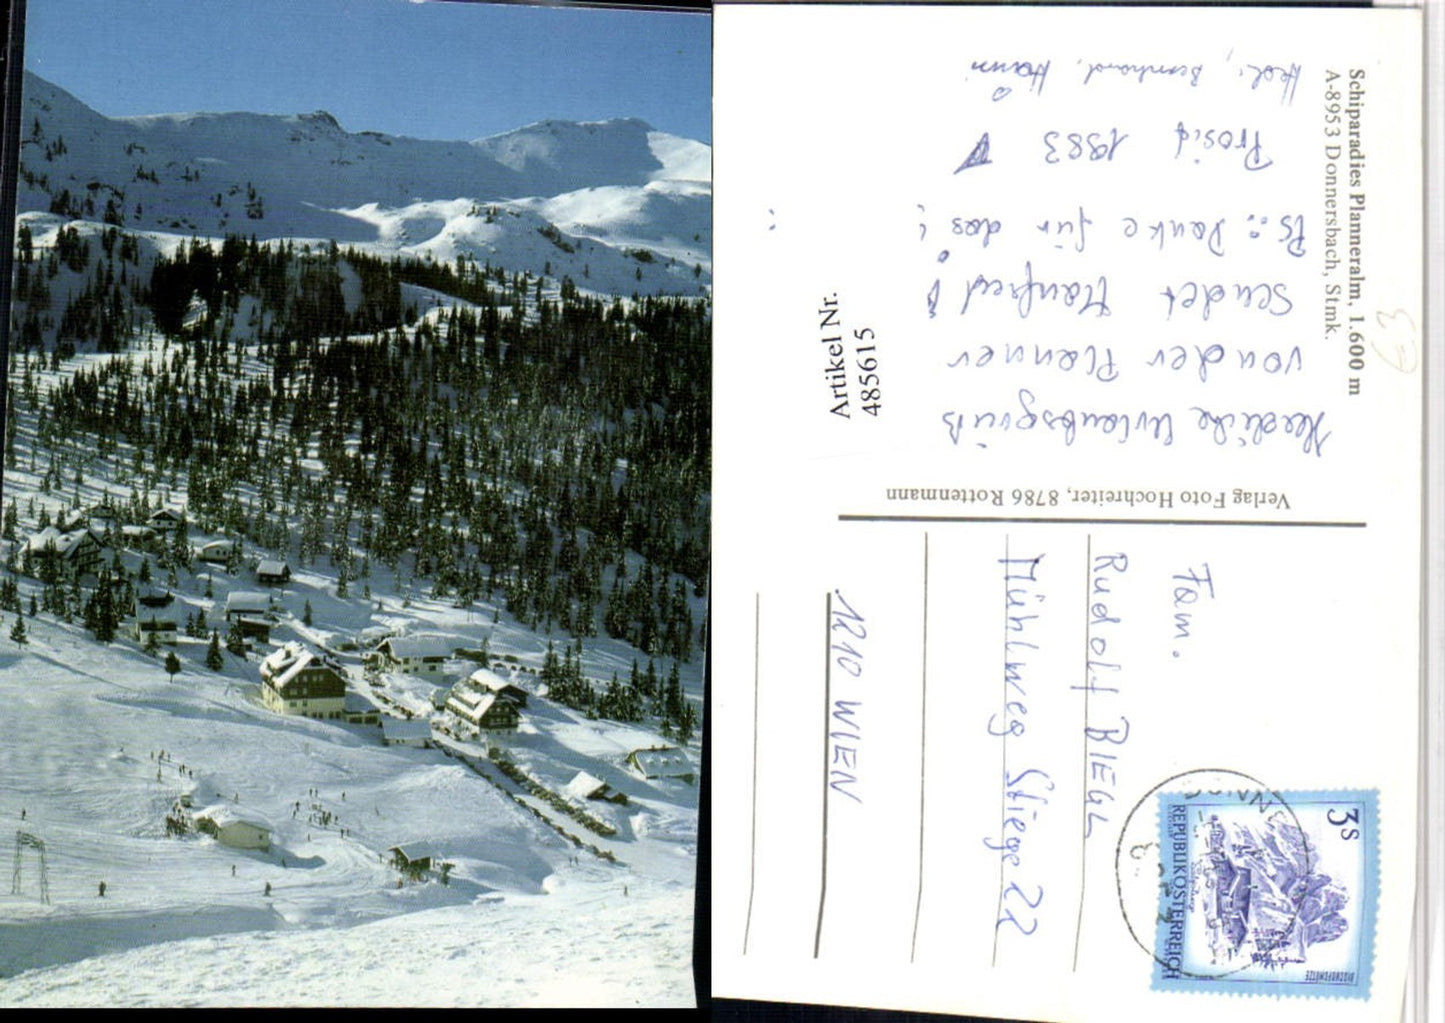 Schiparadies Planneralm, 1.600 m
A-8953 Donnersbach, Stmk.
Herzliche Urlaubsgrüß
von der Planner
sendet Manfred!
PS.: Danke für das!
Prosit 1983
Hedi, Bernhard, Hanni
Verlag Foto Hochreiter, 8786 Rottenmann
Artikel Nr.
485615
Fam.
Rudolf BIEGL
Mühlweg Stiege 22
1210 WIEN
3 S
REPUBLIK ÖSTERREICH
BISCHOFSMÜTZE